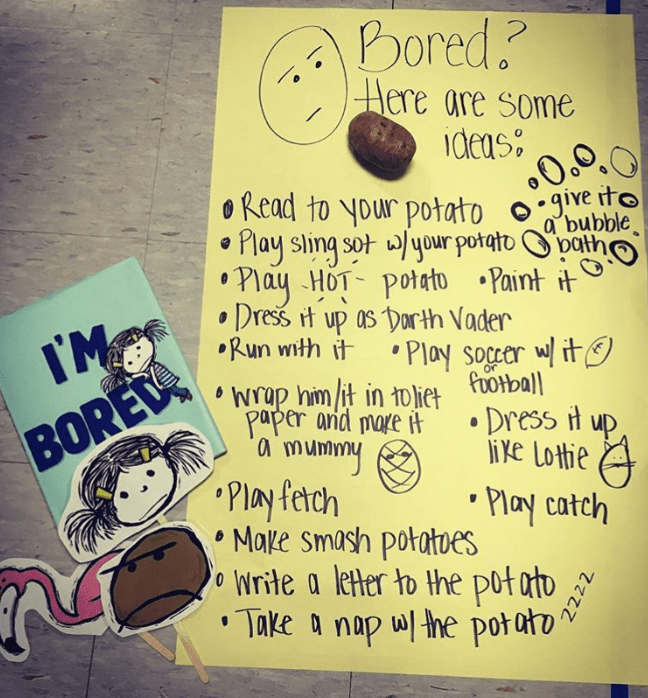 Bored?
Here are some
ideas:
• Read to your potato
• give it
a bubble
bath
• Play sling sot w/ your potato
• Play HOT- potato
• Paint it
• Dress it up as Darth Vader
• Run with it
• Play soccer w/ it
or
football
• wrap him/it in toliet
paper and make it
a mummy
• Dress it up
like Lottie
• Play fetch
• Play catch
• Make smash potatoes
• Write a letter to the potato
• Take a nap w/ the potato zzzz
I'M
BORED